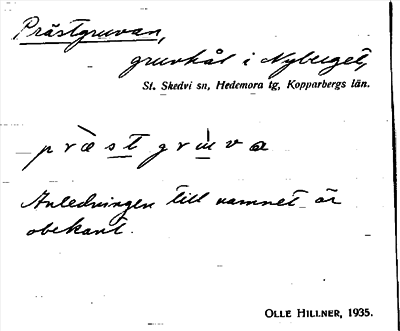 Prästgruvan,
gruvhål i Nyberget,
St. Skedvi sn, Hedemora tg, Kopparbergs län.
præ̀stgruva
Anledningen till namnet är
obekant.
OLLE HILLNER, 1935.